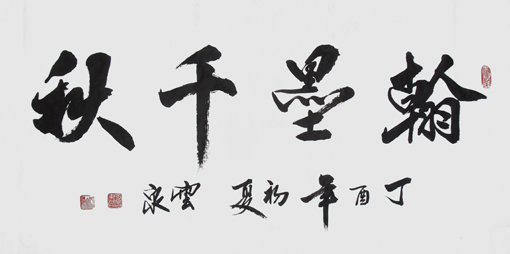 翰墨千秋
丁酉年初夏 雲泉